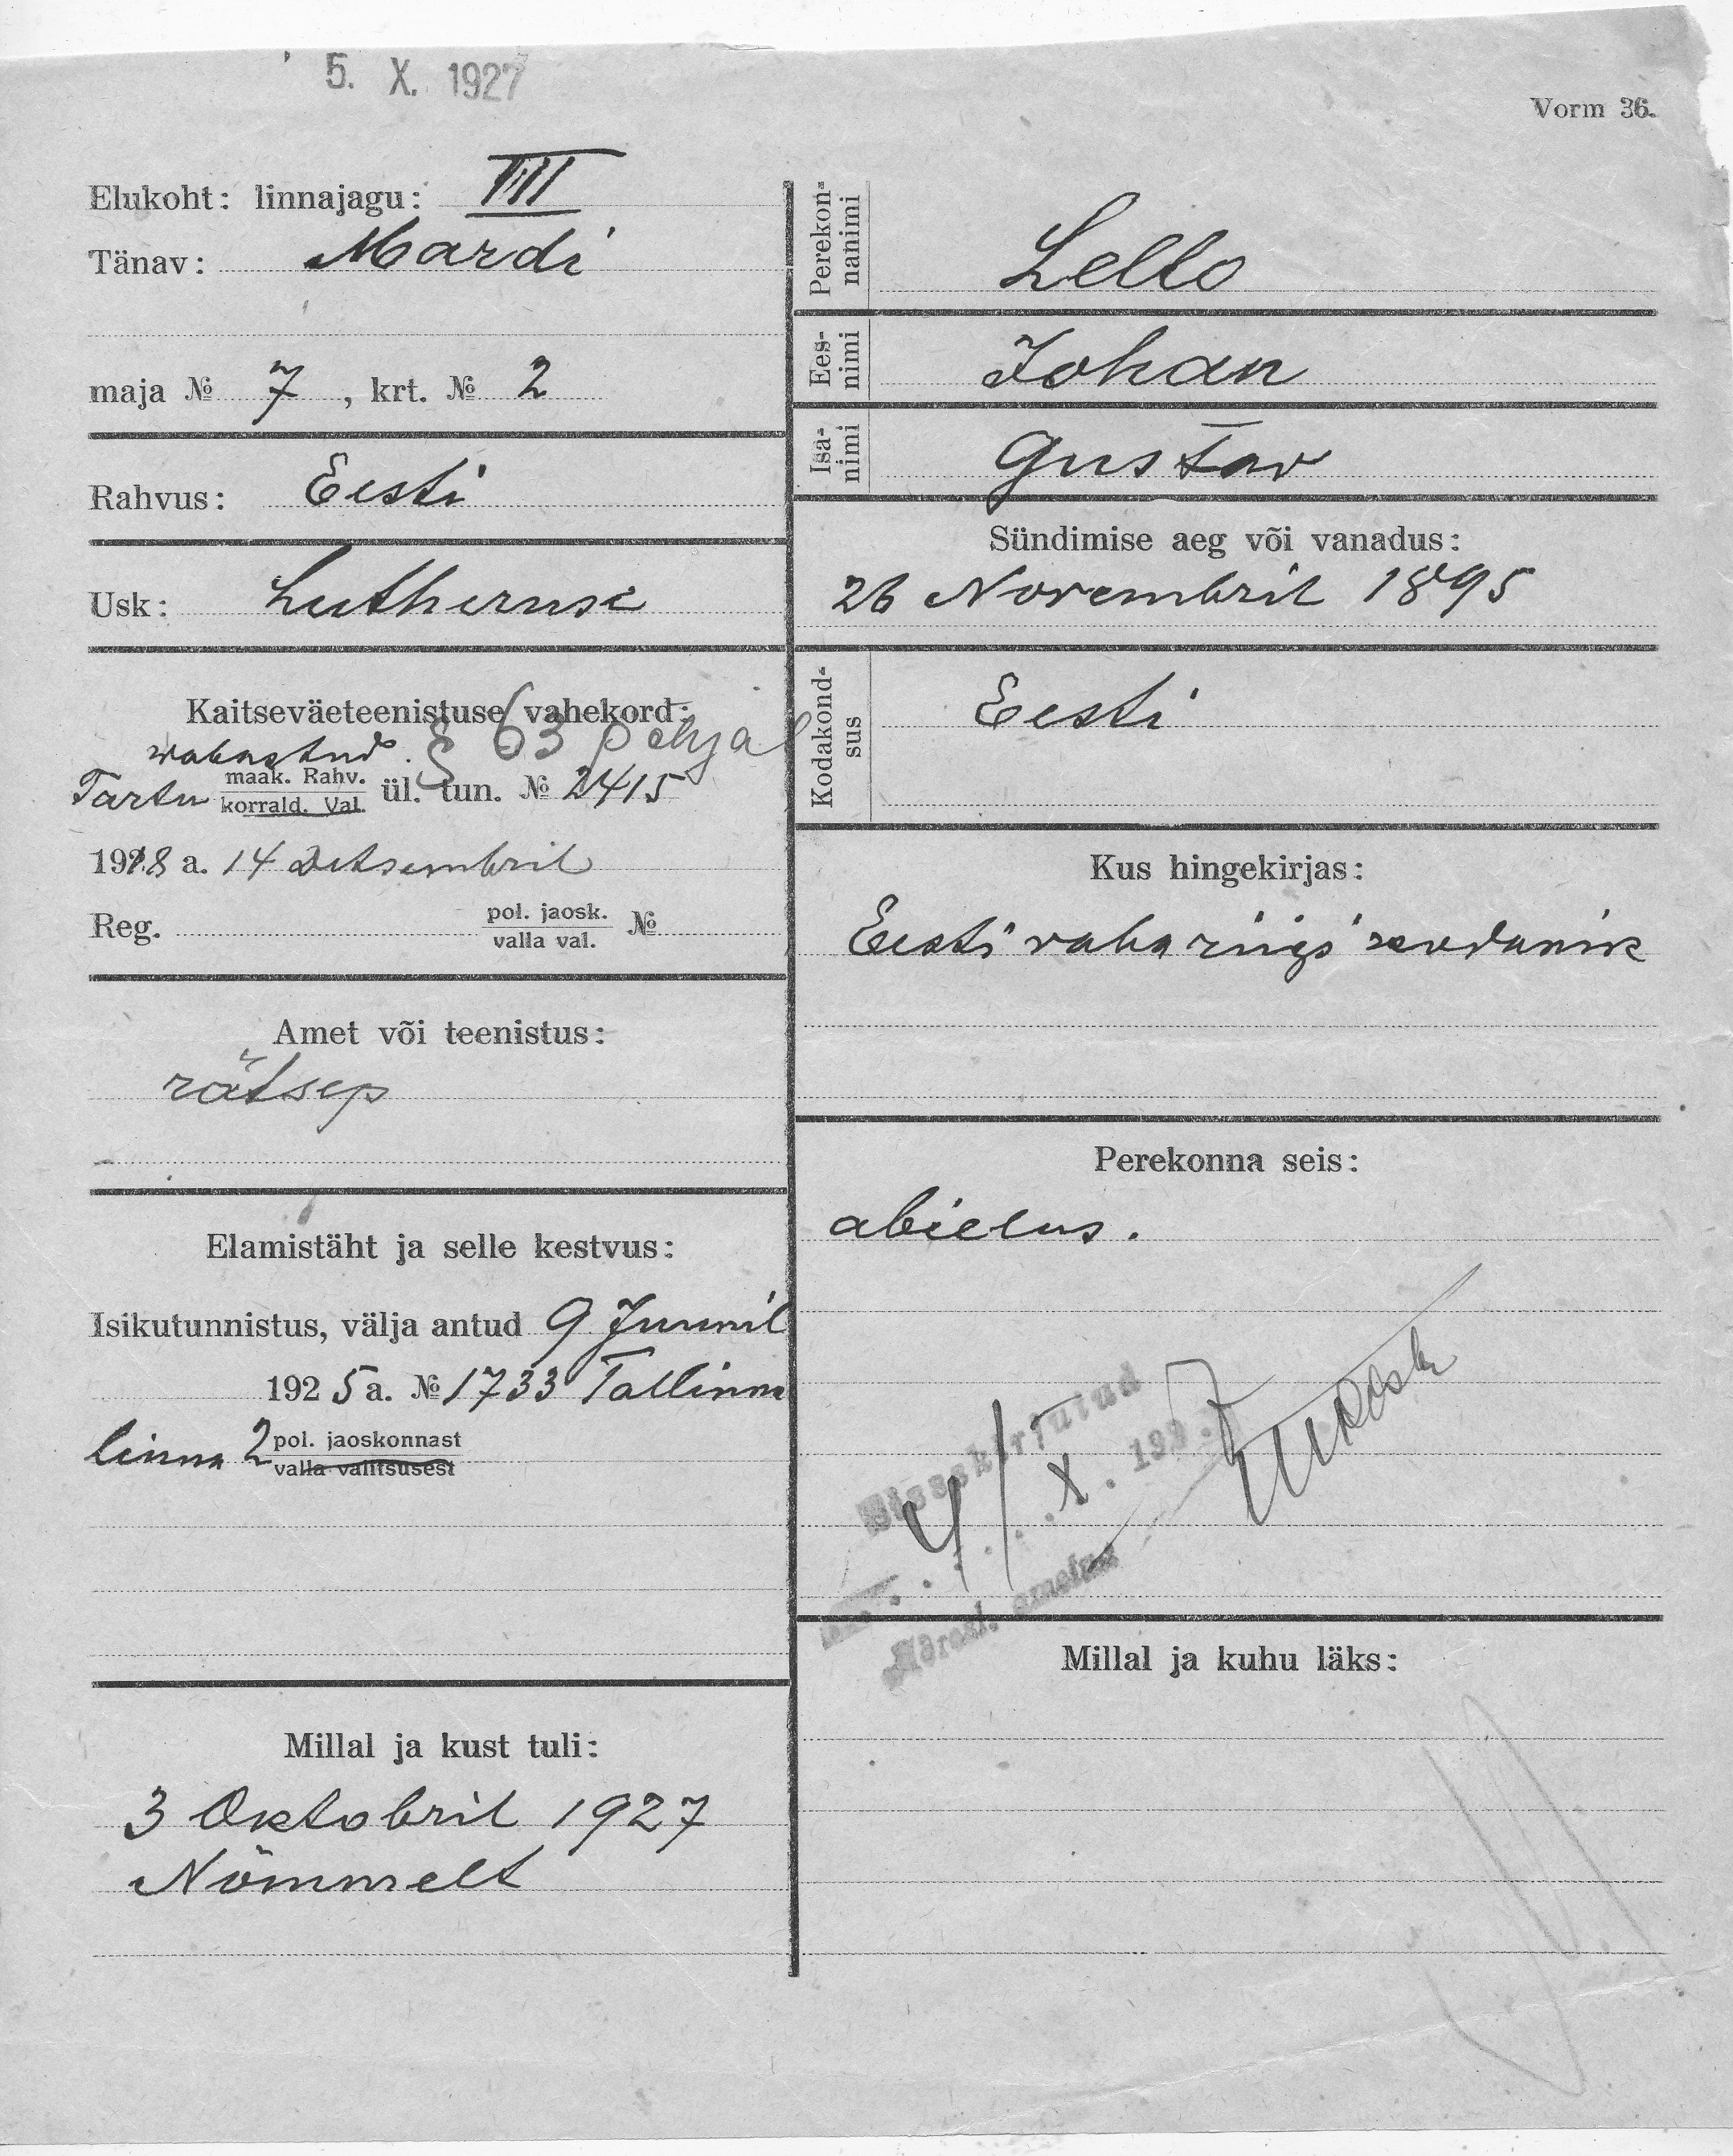 5. X. 1927
Vorm 36.
Elukoht: linnajagu: III
Tänav: Mardi
maja № 7, krt. № 2
Rahvus: Eesti
Usk: Lutheruse
Kaitseväeteenistuse vahekord:
wabastud. § 63 põhjal
Tartu maak. Rahv. korrald. Val. ül. tun. № 2415
1918 a. 14 Detsembril
Reg. pol. jaosk. valla val. №
Amet või teenistus:
rätsep
Elamistäht ja selle kestvus:
Isikutunnistus, välja antud 9 Juunil
1925 a. № 1733 Tallinna
linna 2 pol. jaoskonnast valla valitsusest
Millal ja kust tuli:
3 Oktobril 1927
Nõmmelt
Perekonnanimi Lello
Eesnimi Johan
Isanimi Gustav
Sündimise aeg või vanadus:
26 Novembril 1895
Kodakondsus Eesti
Kus hingekirjas:
Eesti vaba riigi
Perekonna seis:
abielus.
Sissekirjutud
4/X. 1927
Millal ja kuhu läks: